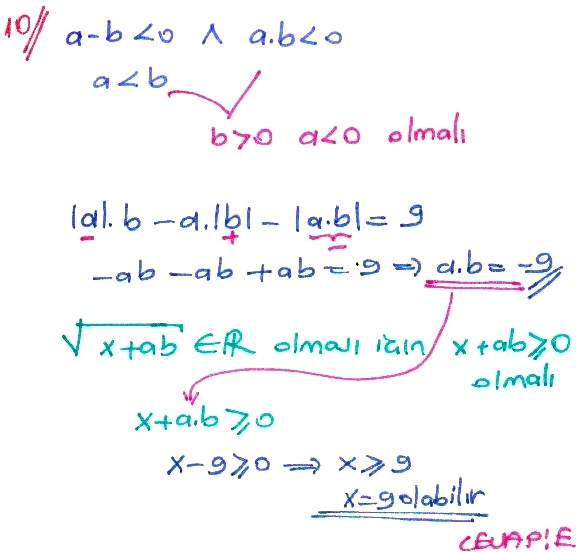 10// a-b<0 ∧ a.b<0
a<b
b>0 a<0 olmalı
|a|.b - a.|b| - |a.b| = 9
-ab - ab + ab = 9 ⇒ a.b = -9
√x+ab ∈ R olması için x+ab≥0
olmalı
x+a.b≥0
x-9≥0 ⇒ x≥9
x=9 olabilir
CEVAP:E